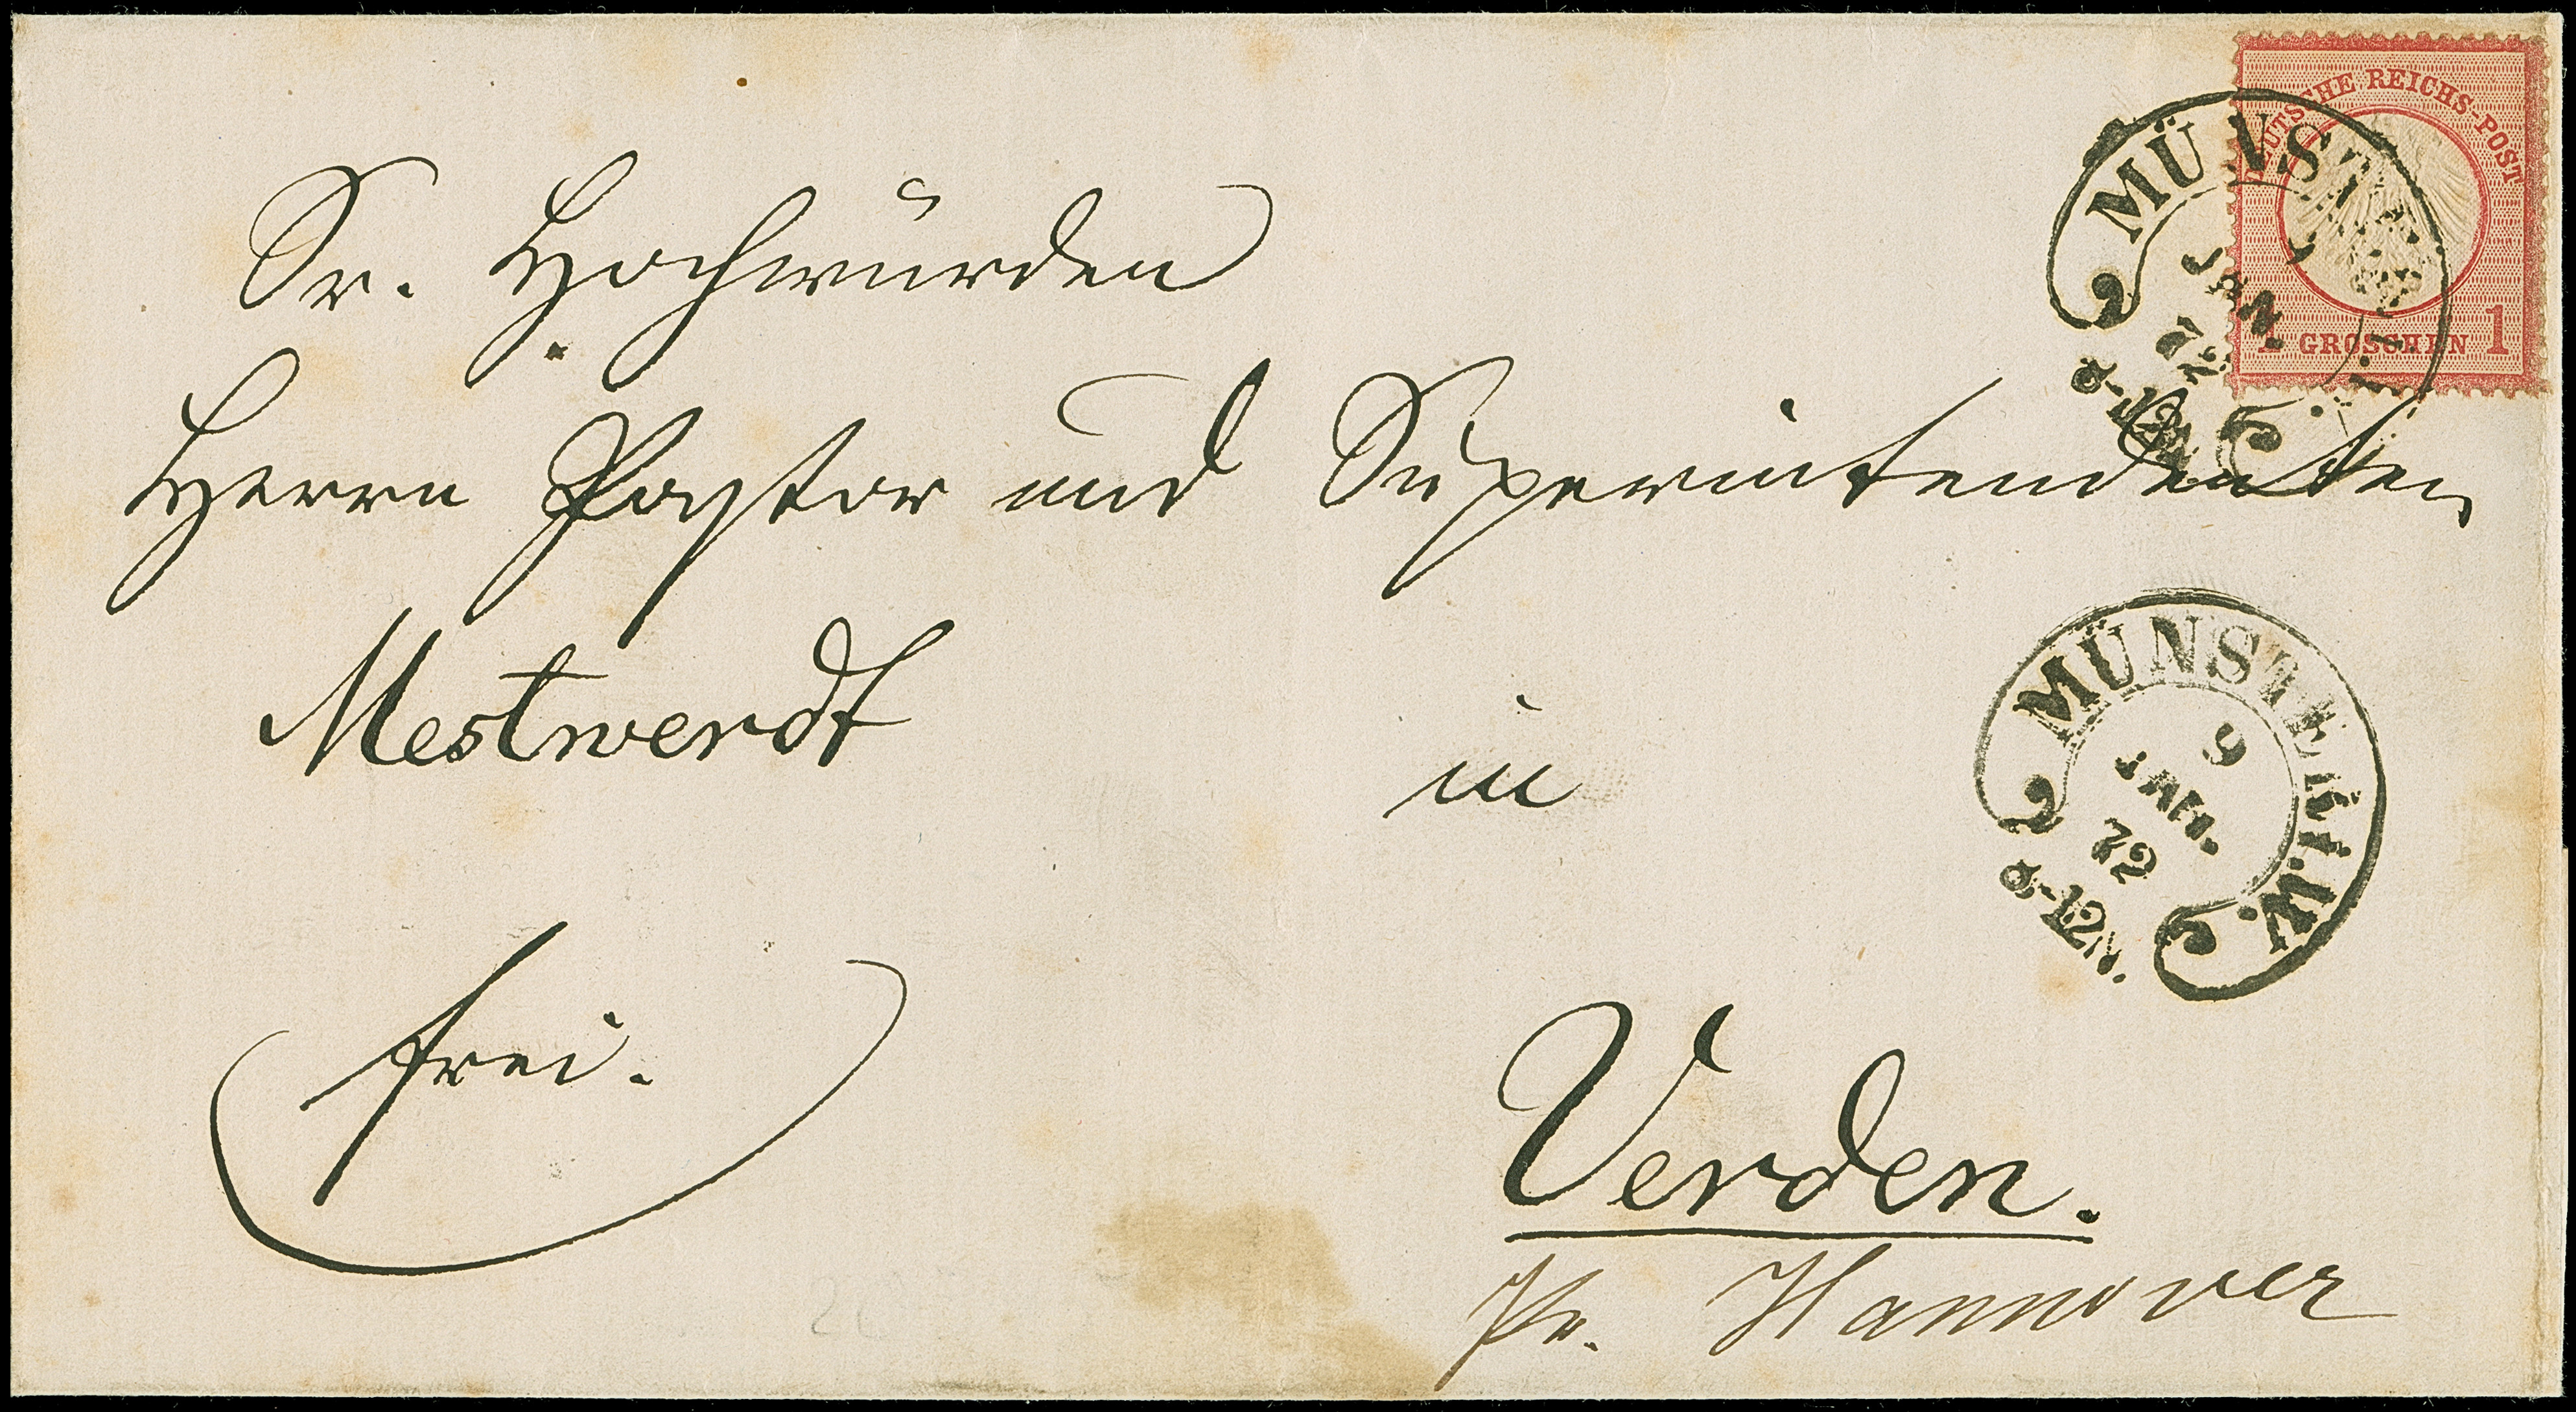 DEUTSCHE REICHS-POST
1 GROSCHEN 1
MÜNST
JAN.
72
8-12N
Sr. Hochwürden
Herrn Pastor und Superintendenten
Mestwerdt
in
MÜNSTER i.W.
9
JAN.
72
8-12N.
frei.
Verden.
Pr. Hannover